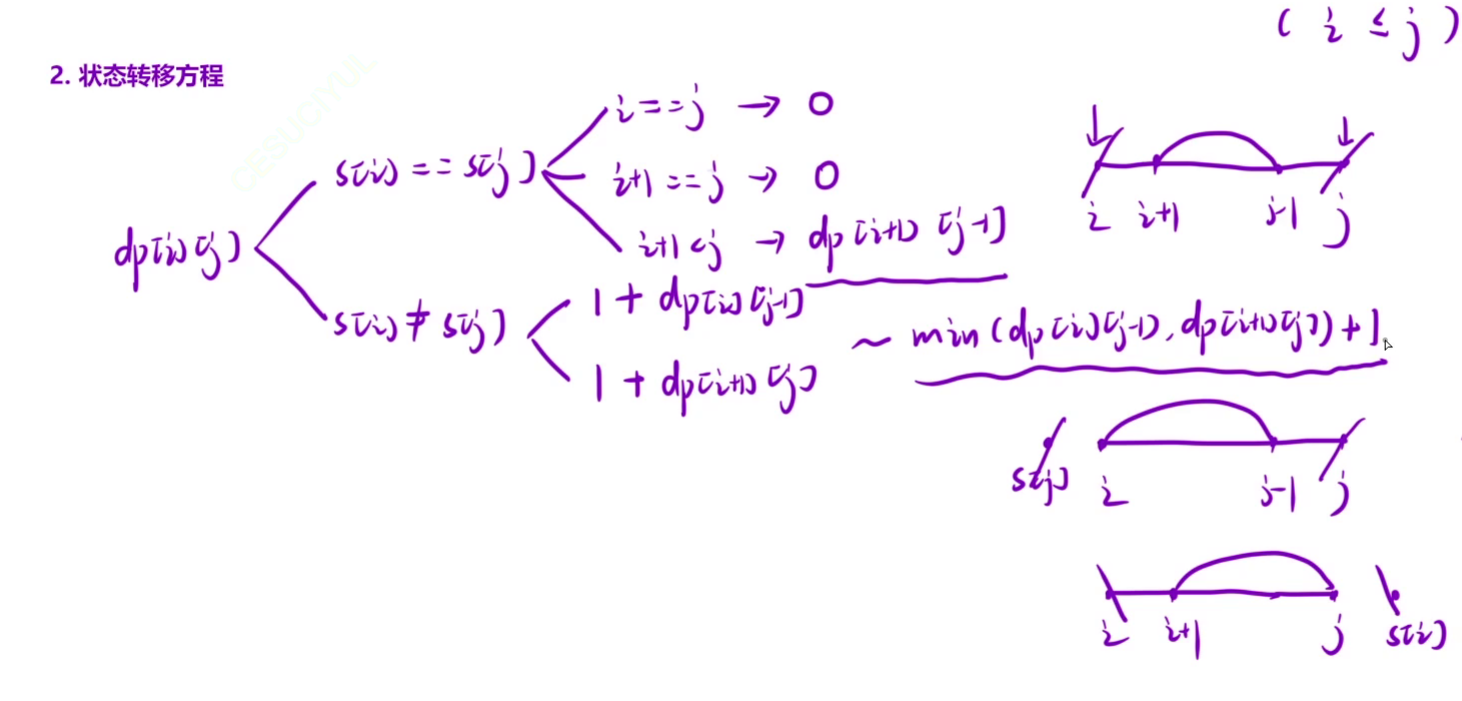 ( i ≤ j )
2. 状态转移方程
CESUCIYUL
i == j → 0
s[i] == s[j]
i+1 == j → 0
i+1 < j → dp[i+1][j-1]
dp[i][j]
s[i] ≠ s[j]
1 + dp[i][j-1]
1 + dp[i+1][j]
~ min(dp[i][j-1], dp[i+1][j]) + 1
i i+1 j-1 j
s[j] i j-1 j
i i+1 j s[i]